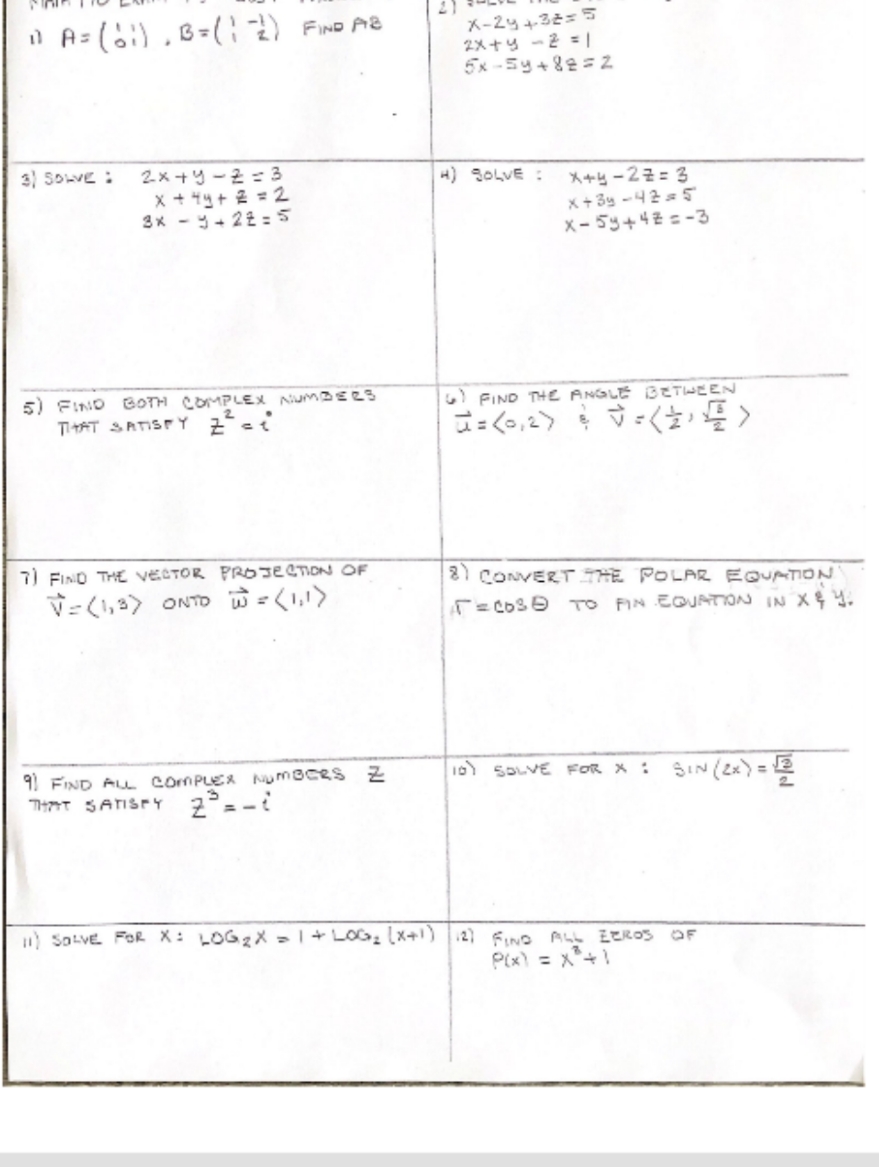 1) A = (1 1 0 1) , B = (1 -1 1 2) FIND AB
2)
x-2y+3z=5
2x+y-z=1
5x-5y+8z=2
3) SOLVE : 2x+y-z=3
x+4y+z=2
3x-y+2z=5
4) SOLVE : x+y-2z=3
x+3y-4z=5
x-5y+4z=-3
5) FIND BOTH COMPLEX NUMBERS
THAT SATISFY z²=i
6) FIND THE ANGLE BETWEEN
u⃗=<0,2> & v⃗=<1/2, √3/2>
7) FIND THE VECTOR PROJECTION OF
v⃗=<1,3> ONTO w⃗=<1,1>
8) CONVERT THE POLAR EQUATION
r=cosθ TO AN EQUATION IN x & y.
9) FIND ALL COMPLEX NUMBERS z
THAT SATISFY z³=-i
10) SOLVE FOR x : SIN(2x)=√3/2
11) SOLVE FOR X: LOG₂X = 1 + LOG₂(x+1)
12) FIND ALL ZEROS OF
P(x) = x³+1